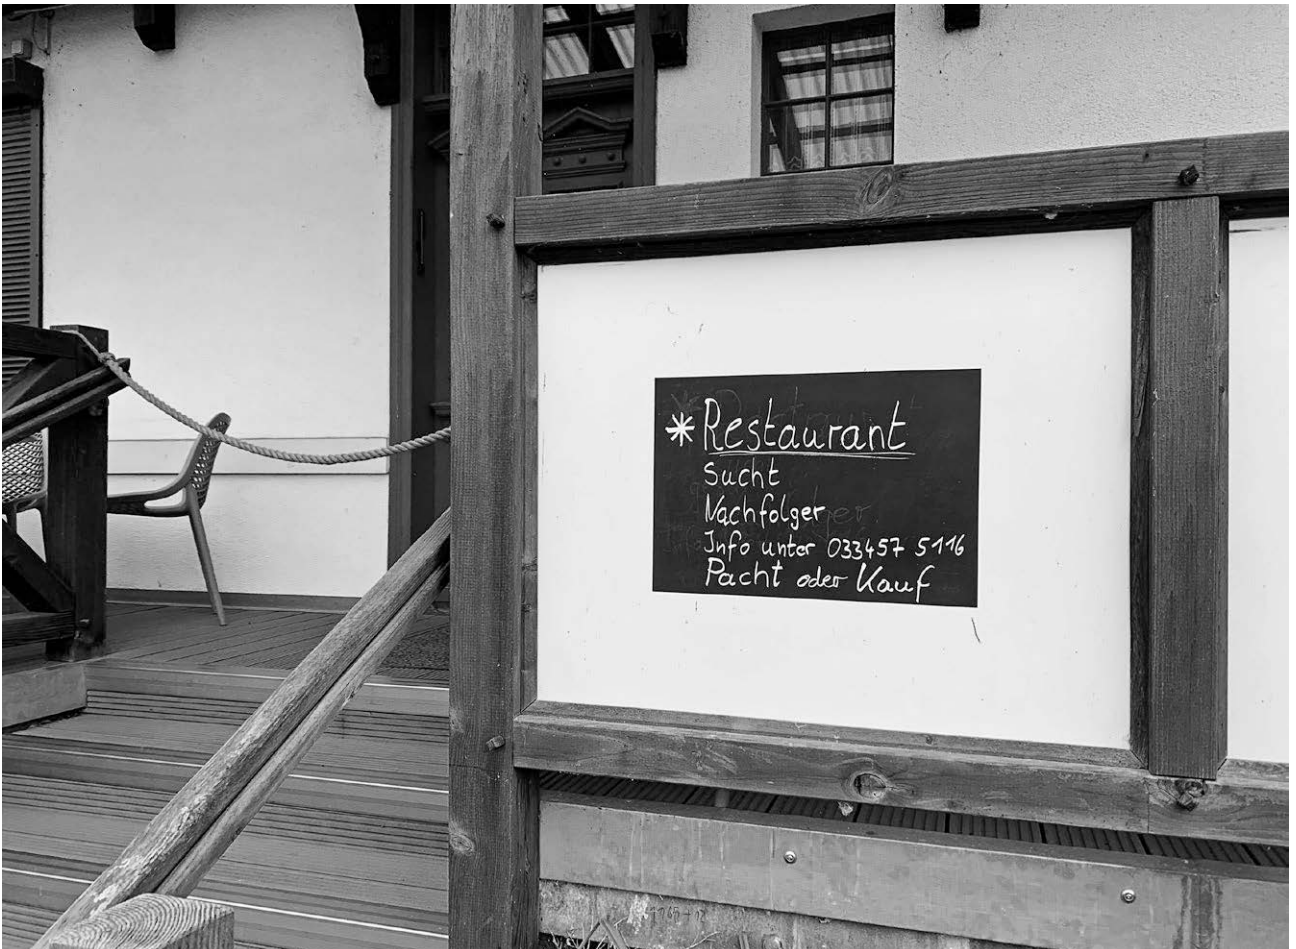 * Restaurant
Sucht
Nachfolger
Info unter 033457 5116
Pacht oder Kauf